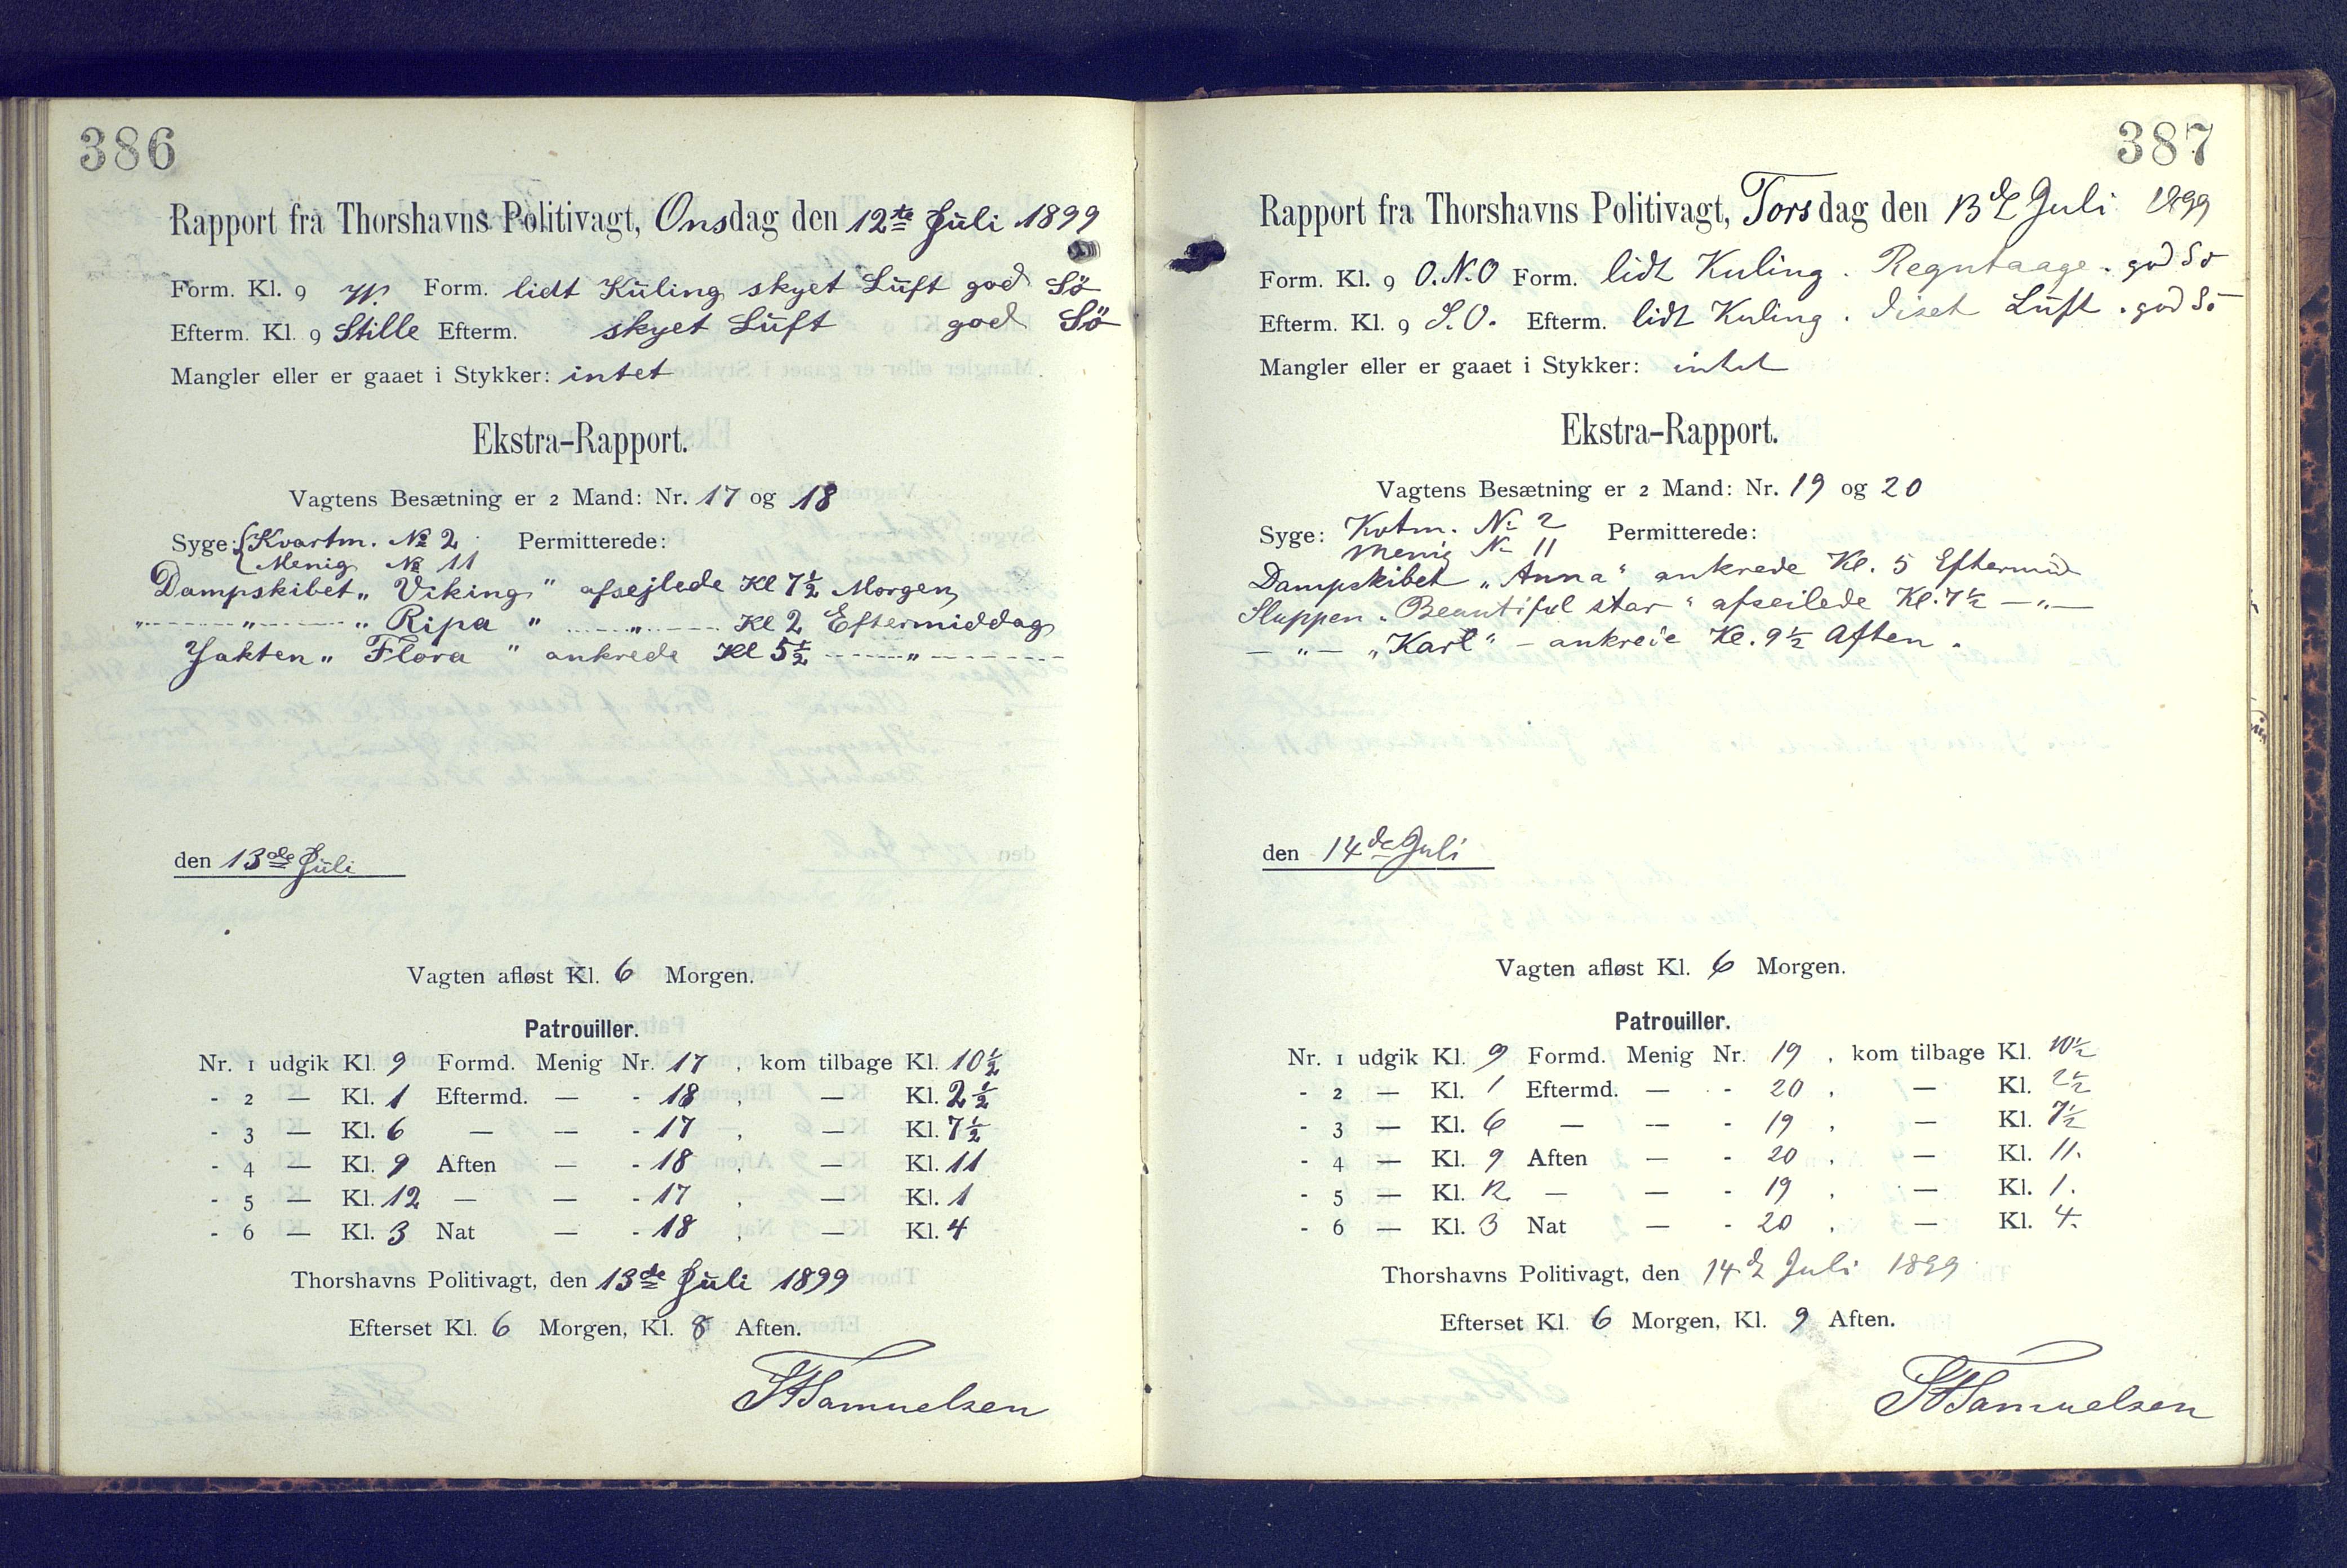 386
Rapport fra Thorshavns Politivagt, Onsdag den 12te Juli 1899
Form. Kl. 9 W. Form. lidt Kuling skyet Luft god Sö
Efterm. Kl. 9 Stille Efterm. skyet Luft god Sö
Mangler eller er gaaet i Stykker: intet
Ekstra-Rapport.
Vagtens Besætning er 2 Mand: Nr. 17 og 18
Syge: Kvartm. № 2 Permitterede:
Menig № 11
Dampskibet „ Viking " afsejlede Kl 7½ Morgen
" " „ Ripa " " Kl 2 Eftermiddag
Jakten „ Flora " ankrede Kl 5½ "
den 13de Juli
Vagten afløst Kl. 6 Morgen.
Patrouiller.
Nr. 1 udgik Kl. 9 Formd. Menig Nr. 17 , kom tilbage Kl. 10½
- 2 — Kl. 1 Eftermd. — - 18 , — Kl. 2½
- 3 — Kl. 6 — — - 17 , — Kl. 7½
- 4 — Kl. 9 Aften — - 18 , — Kl. 11
- 5 — Kl. 12 — — - 17 , — Kl. 1
- 6 — Kl. 3 Nat — - 18 , — Kl. 4
Thorshavns Politivagt, den 13de Juli 1899
Efterset Kl. 6 Morgen, Kl. 8 Aften.
Samuelsen
387
Rapport fra Thorshavns Politivagt, Torsdag den 13d Juli 1899
Form. Kl. 9 O.N.O Form. lidt Kuling . Regntaage . god Sö
Efterm. Kl. 9 S.O. Efterm. lidt Kuling . diset Luft . god Sö
Mangler eller er gaaet i Stykker: intet
Ekstra-Rapport.
Vagtens Besætning er 2 Mand: Nr. 19 og 20
Syge: Kvtm. № 2 Permitterede:
Menig № 11
Dampskibet „Anna" ankrede Kl. 5 Eftermid
Sluppen „Beautiful star" afseilede Kl. 7½ — " —
— " — „Karl" — ankrede Kl. 9½ Aften .
den 14de Juli
Vagten afløst Kl. 6 Morgen.
Patrouiller.
Nr. 1 udgik Kl. 9 Formd. Menig Nr. 19 , kom tilbage Kl. 10½
- 2 — Kl. 1 Eftermd. — - 20 , — Kl. 2½
- 3 — Kl. 6 — — - 19 , — Kl. 7½
- 4 — Kl. 9 Aften — - 20 , — Kl. 11.
- 5 — Kl. 12 — — - 19 , — Kl. 1.
- 6 — Kl. 3 Nat — - 20 , — Kl. 4.
Thorshavns Politivagt, den 14d Juli 1899
Efterset Kl. 6 Morgen, Kl. 9 Aften.
Samuelsen